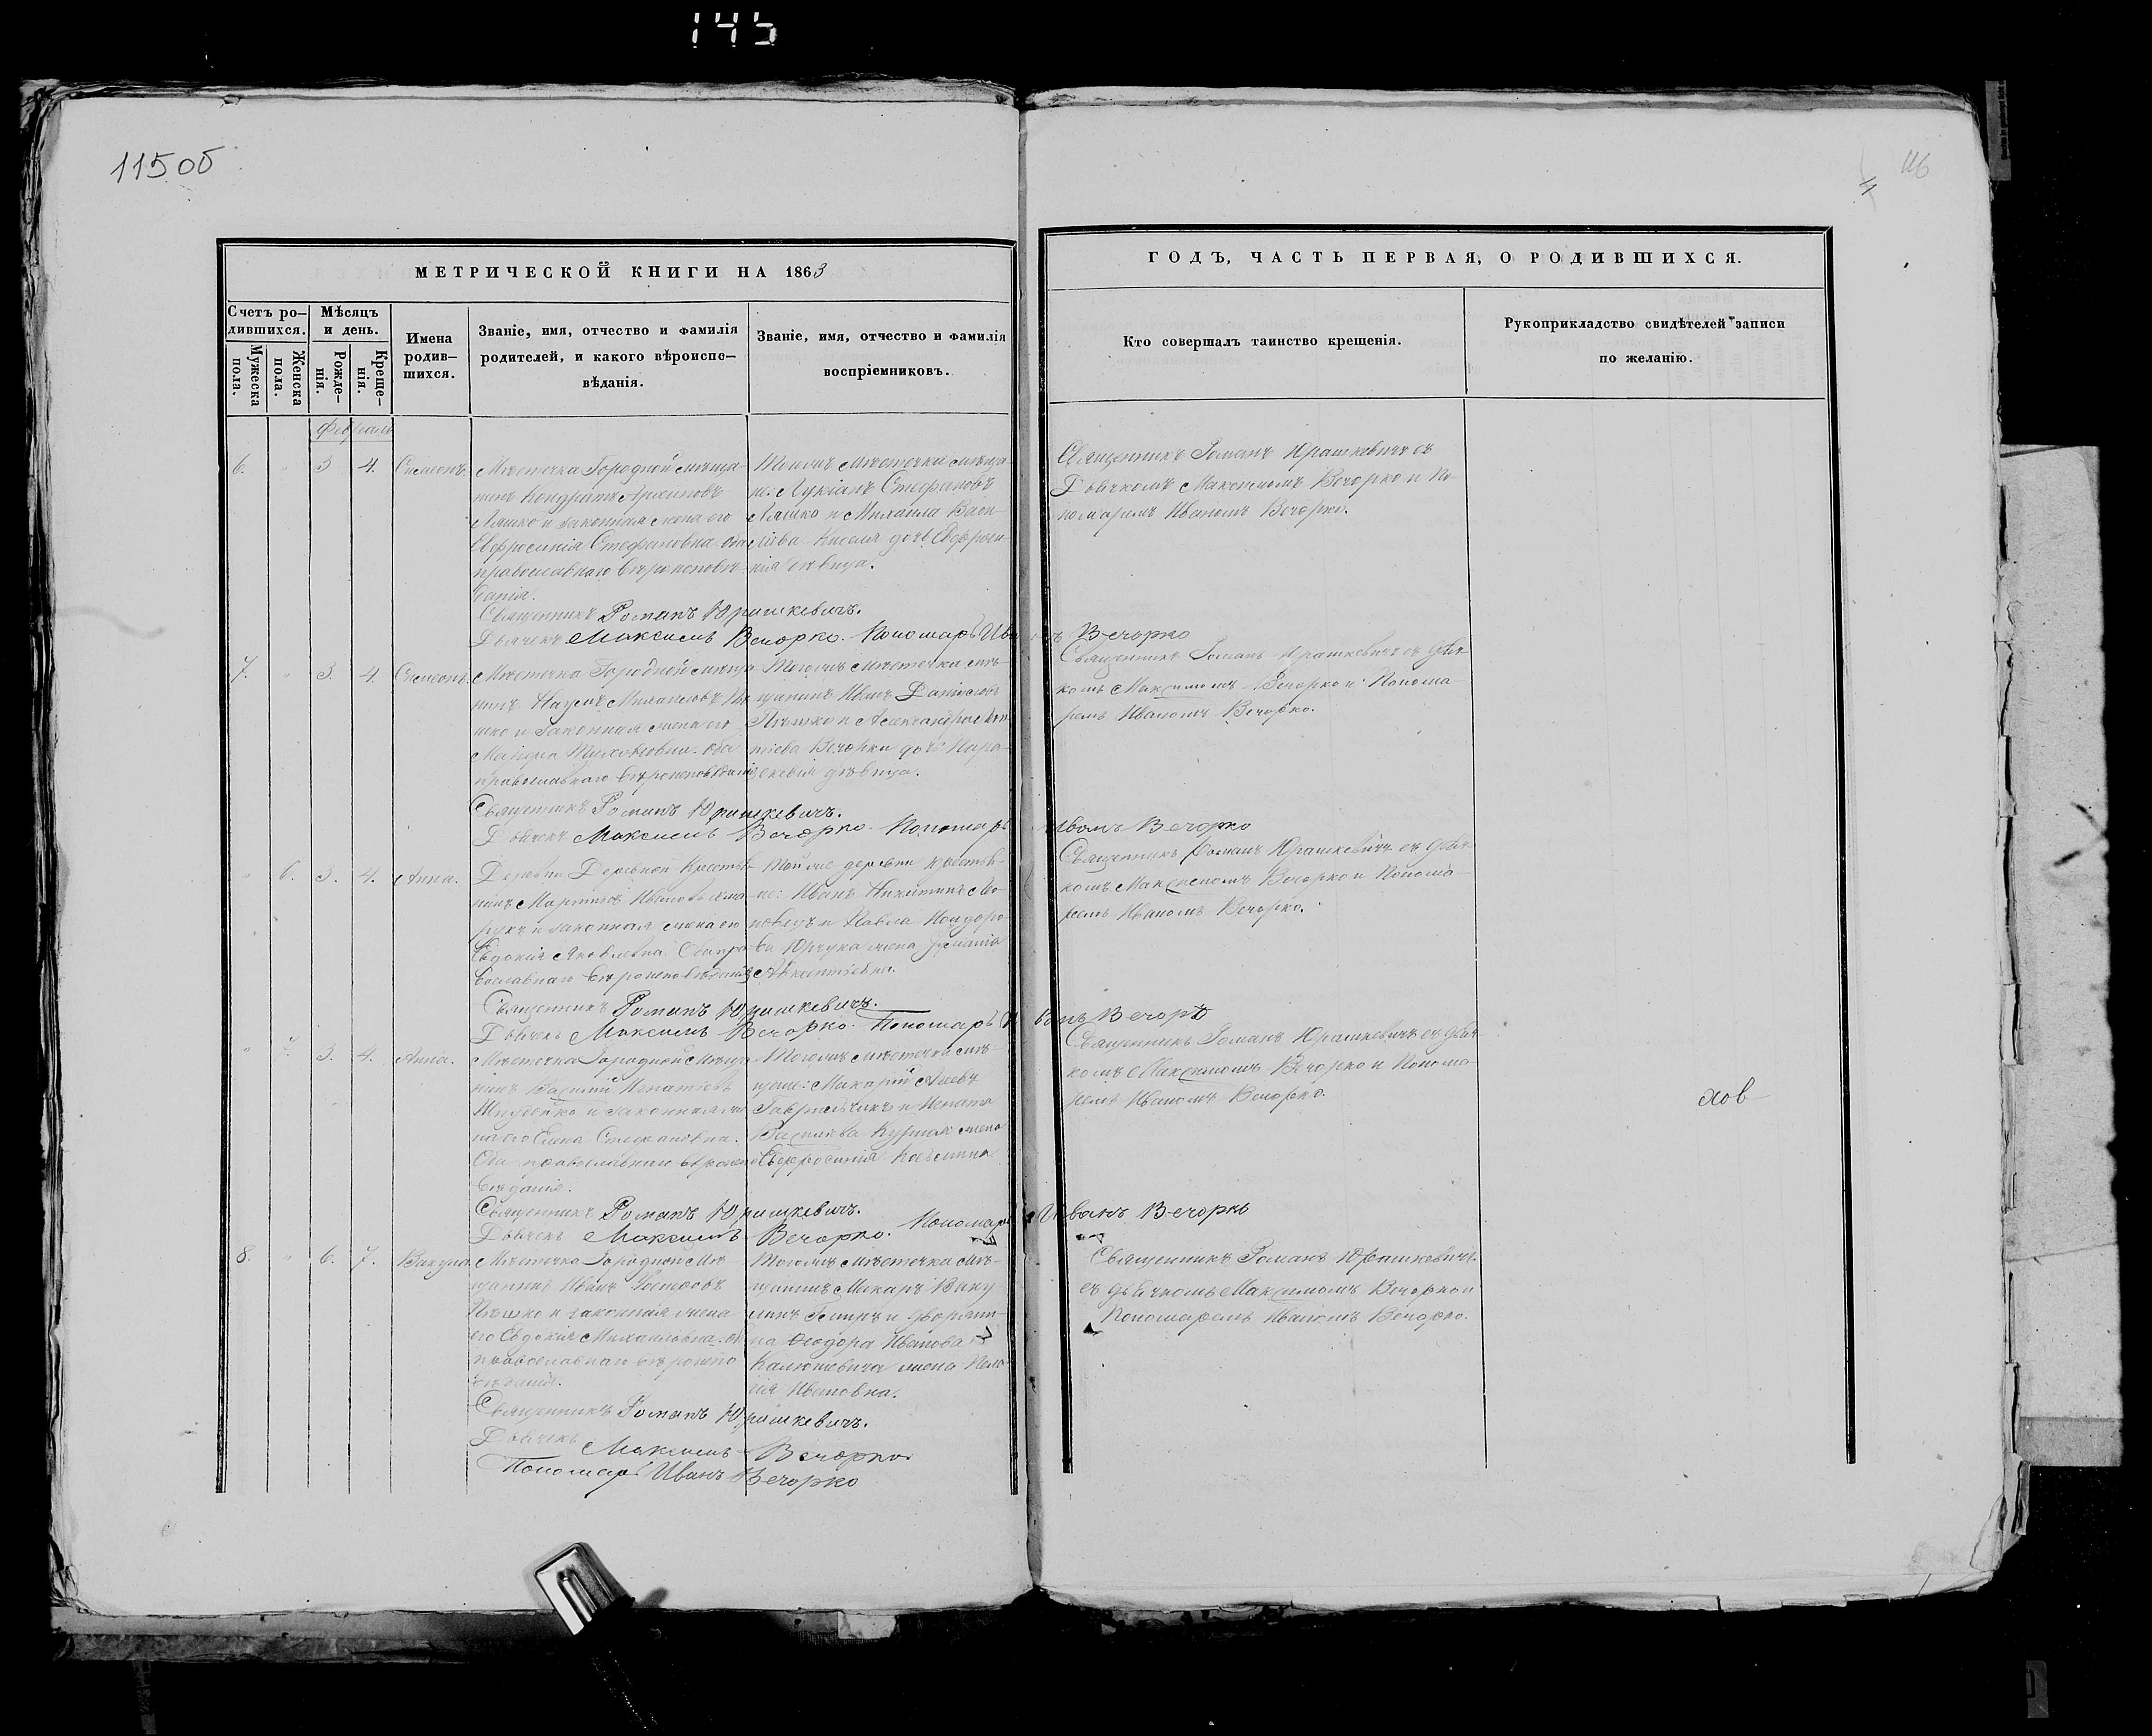 145
115 об
116
МЕТРИЧЕСКОЙ КНИГИ НА 1863
ГОДЪ, ЧАСТЬ ПЕРВАЯ, О РОДИВШИХСЯ.
Счетъ ро-
дившихся.
Мужеска
пола.
Женска
пола.
Мѣсяцъ
и день.
Рожде-
нія.
Креще-
нія.
Имена
родив-
шихся.
Званіе, имя, отчество и фамилія
родителей, и какого вѣроиспо-
вѣданія.
Званіе, имя, отчество и фамилія
воспріемниковъ.
Кто совершалъ таинство крещенія.
Рукоприкладство свидѣтелей записи
по желанію.
Февраль
6. " 3 4. Симеонъ.
Мѣстечка Городной мѣща-
нинъ Кондратъ Архиповъ
Ляшко и законная жена его
Евфросинія Стефановна оба
православнаго вѣроисповѣ-
данія.
Тогожъ мѣстечка мѣща-
не: Лукіанъ Стефановъ
Ляшко и Михаила Васи-
ліева Киселя дочь Евфроси-
нія дѣвица.
Священникъ Романъ Юрашкевичъ съ
Дьячкомъ Максимомъ Вечорко и По
номаремъ Иваномъ Вечорко.
Священникъ Романъ Юрашкевичъ.
Дьячекъ Максимъ Вечорко. Пономарь Иванъ Вечорко
7. " 3. 4. Симеонъ.
Мѣстечка Городной мѣща-
нинъ Наумъ Михаиловъ
шко и законная жена его
оба
православнаго вѣроисповѣданія
Тогожъ мѣстечка мѣ-
щанинъ Иванъ Даниловъ
Пѣшко и Александра
Вечорки дочь Пара-
скевія дѣвица.
Священникъ Романъ Юрашкевичъ съ дьяч-
комъ Максимомъ Вечорко и Понома-
ремъ Иваномъ Вечорко.
Священникъ Романъ Юрашкевичъ.
Дьячекъ Максимъ Вечорко. Пономарь Иванъ Вечорко
" 6. 3. 4. Анна.
Деревни Деревной Крестья-
нинъ Мартинъ Ивановъ
рукъ и законная жена его
Евдокія Яковлевна. Оба пра-
вославнаго вѣроисповѣданія
Тойже деревни крестья-
не: Иванъ Никитинъ
и Павла
ва Юрчука жена
Священникъ Романъ Юрашкевичъ съ дьяч-
комъ Максимомъ Вечорко и Понома-
ремъ Иваномъ Вечорко.
Священникъ Романъ Юрашкевичъ.
Дьячекъ Максимъ Вечорко. Пономарь Иванъ Вечорко
" 7. 3. 4. Анна.
Мѣстечка Городной Мѣща-
нинъ Василій Игнатіевъ
Шпудейко и законная же-
на его Елена Стефановна.
Оба православнаго вѣроиспо-
вѣданія.
Тогожъ мѣстечка мѣ-
щане: Макарій
Гаврильчикъ и Игната
Василіева жена
Евфросинія
Священникъ Романъ Юрашкевичъ съ дьяч-
комъ Максимомъ Вечорко и Понома-
ремъ Иваномъ Вечорко.
Священникъ Романъ Юрашкевичъ.
Дьячекъ Максимъ Вечорко. Пономарь Иванъ Вечорко
8. " 6. 7. Вакула.
Мѣстечка Городной Мѣ-
щанинъ Иванъ Іосифовъ
Пѣшко и законная жена
его Евдокія Михаиловна. об
православнаго вѣроиспо-
вѣданія.
Тогожъ мѣстечка мѣ-
щанинъ Макаръ Ваку-
линъ и дворяни-
на Ѳеодора Иванова
жена Пела-
гія Ивановна.
Священникъ Романъ Юрашкевичъ
съ дьячкомъ Максимомъ Вечорко и
Пономаремъ Иваномъ Вечорко.
Священникъ Романъ Юрашкевичъ.
Дьячекъ Максимъ Вечорко
Пономарь Иванъ Вечорко